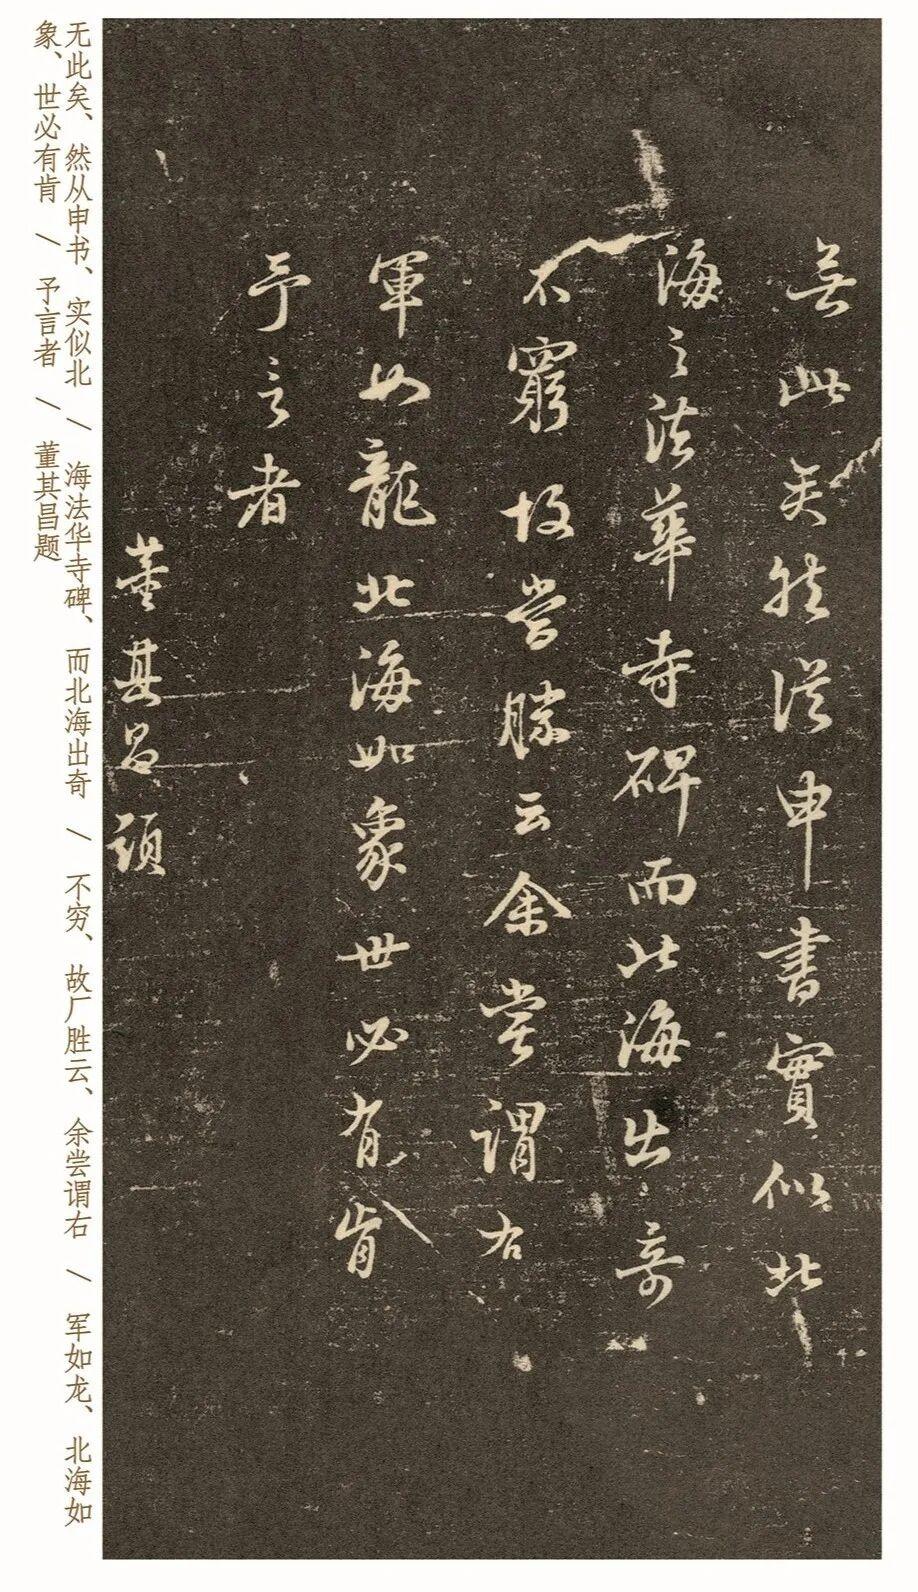 無此矣然從申書實似北
海之法華寺碑而北海出奇
不窮故當勝云余嘗謂右
軍如龍北海如象世必有肯
予言者
董其昌題
无此矣、然从申书、实似北 / 海法华寺碑、而北海出奇 / 不穷、故厂胜云、余尝谓右 / 军如龙、北海如
象、世必有肯 / 予言者 / 董其昌题